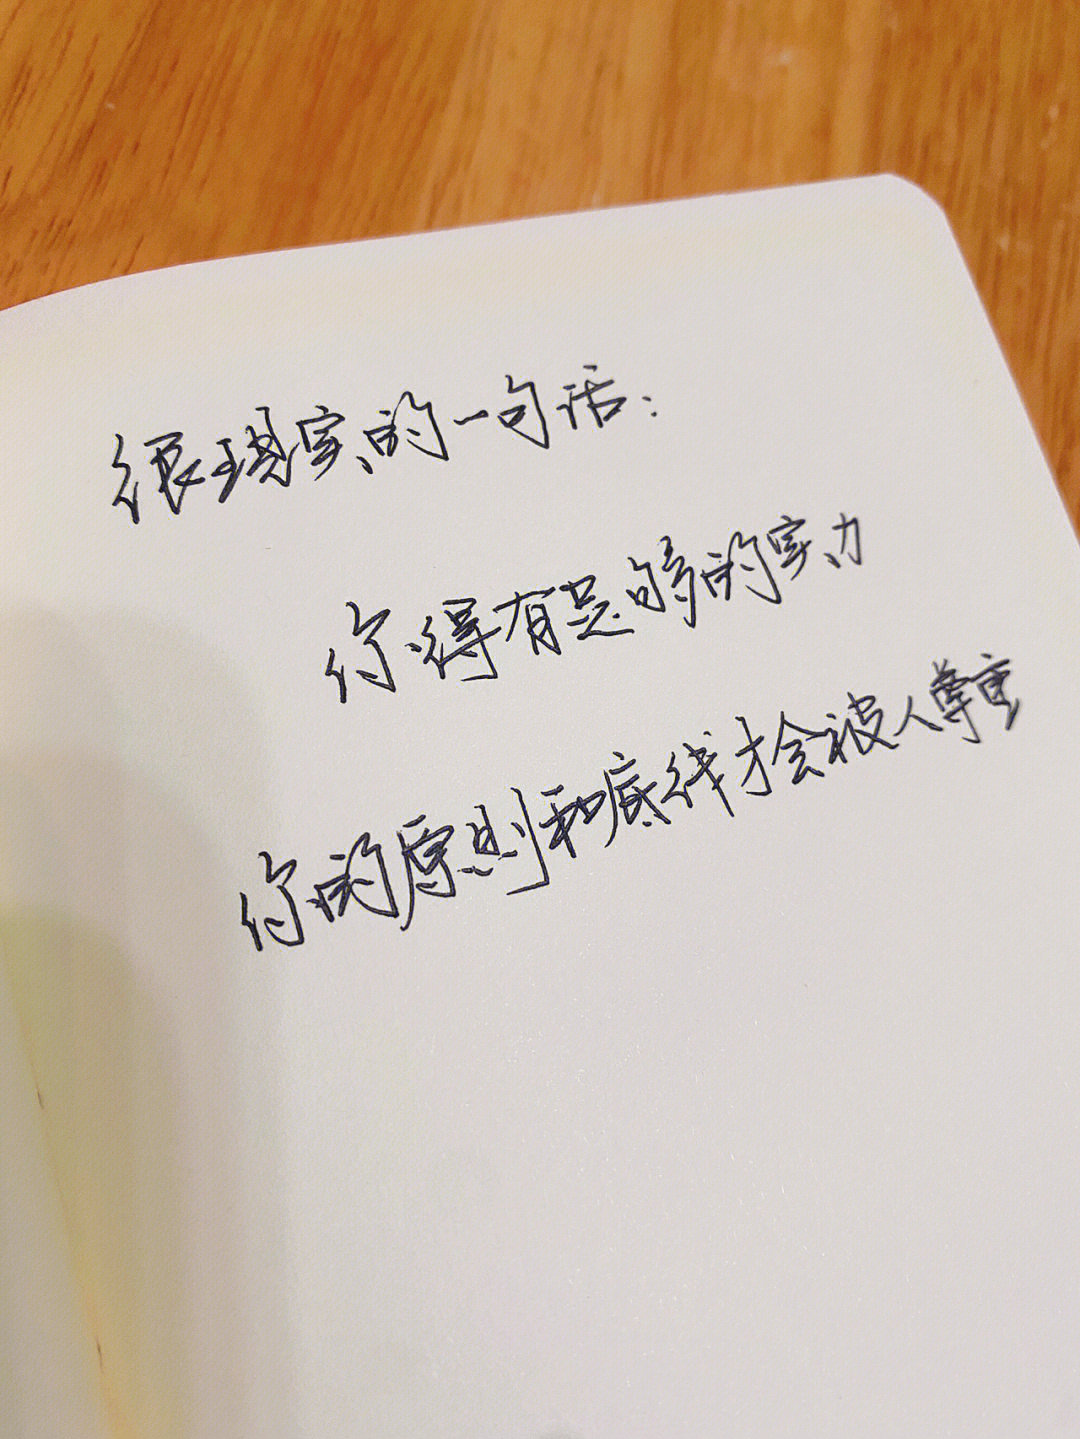 很现实的一句话:
你得有足够的实力
你的原则和底线才会被人尊重